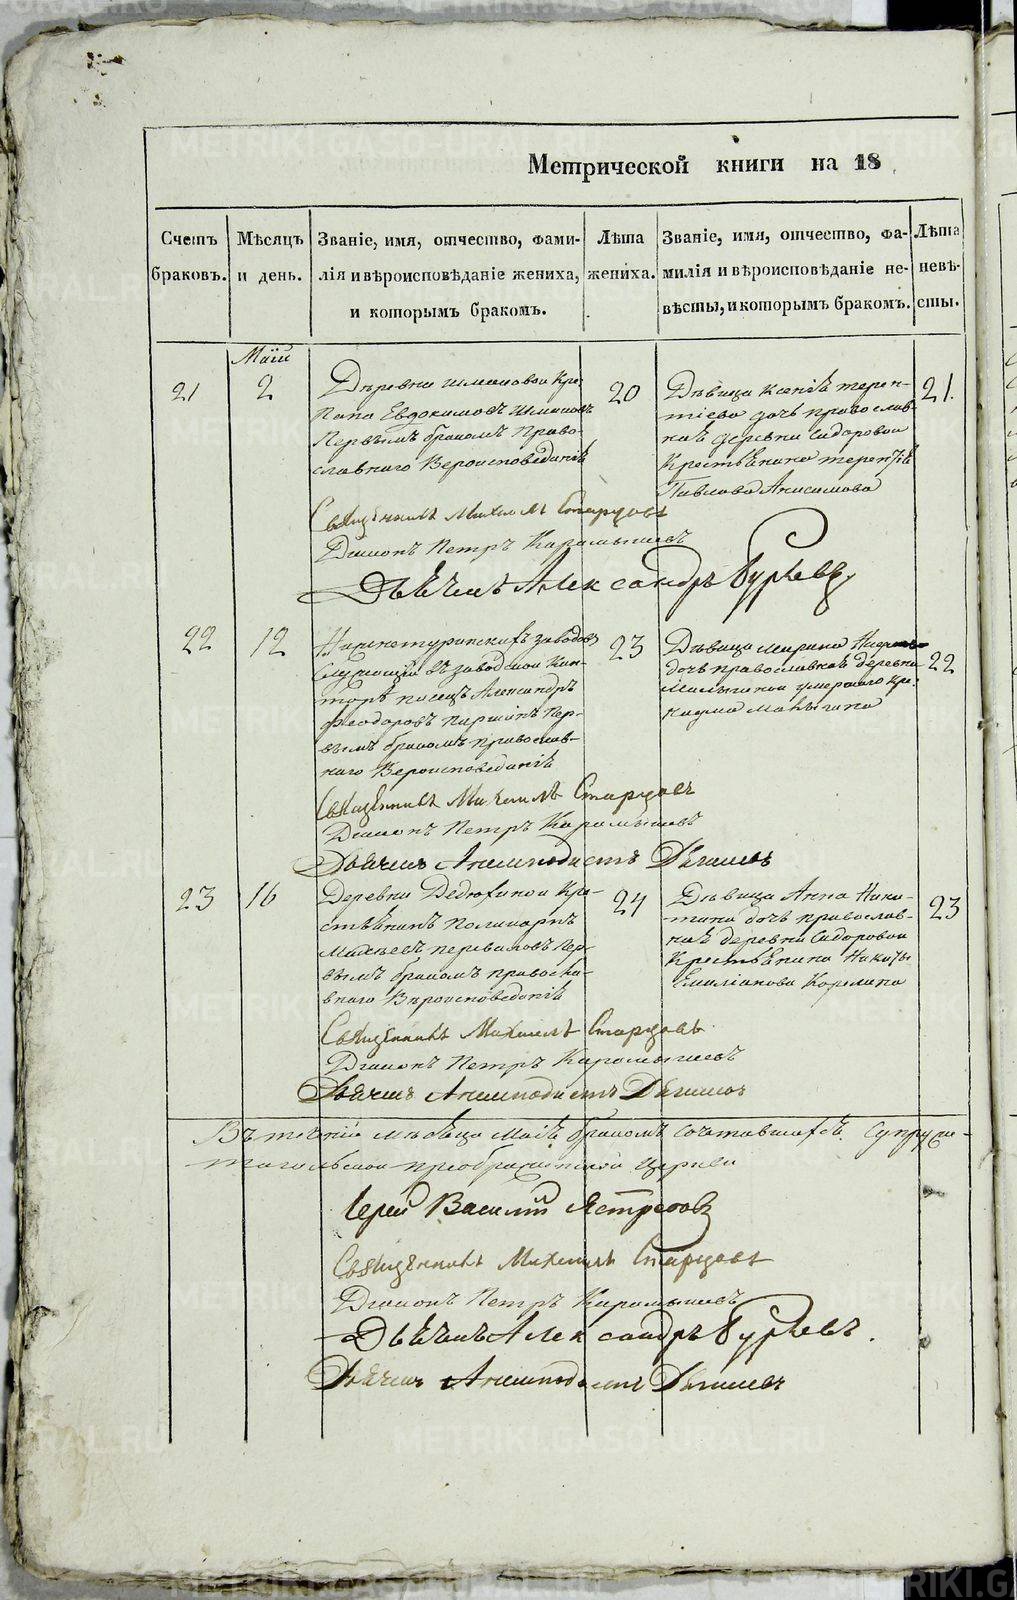 Метрической книги на 18
Счетъ браковъ.
Мѣсяцъ и день.
Званіе, имя, отчество, фами-
лія и вѣроисповѣданіе жениха,
и которымъ бракомъ.
Лѣта жениха.
Званіе, имя, отчество, фа-
милія и вѣроисповѣданіе не-
вѣсты, и которымъ бракомъ.
Лѣта невѣ-
сты.
Маїи
21
2
Деревни
Евдокимовъ
Первымъ бракомъ Право-
славнаго Вероисповеданія
20
Дѣвица Ксенія Терен-
тіева дочь православ-
ная деревни Сидоровой
Крестьянина Терентія
Павлова Анисимова
21.
Священникъ Михаилъ Старцовъ
Діаконъ Петръ Карамышевъ
Дьячекъ Александръ Гурьевъ
22
12
Нижнетуринскихъ заводовъ
Служащій въ заводской Кон-
торѣ писецъ Александръ
Феодоровъ Паршинъ Пер-
вымъ бракомъ православ-
наго Вероисповеданія
23
Дѣвица Марина
дочь православная деревни
умершаго кре:
Наума Малыгина
22
Священникъ Михаилъ Старцовъ
Діаконъ Петръ Карамышевъ
Дьячекъ Анемподистъ Дягилевъ
23
16
Деревни Дедюхиной Кре-
стьянинъ Поликарпъ
первымъ бракомъ правосла-
внаго Вироисповеданія
24
Дѣвица Анна Ники-
тина дочь православ-
ная деревни Сидоровой
Крестьянина Никиты
Емиліанова Корелина
23
Священникъ Михаилъ Старцовъ
Діаконъ Петръ Карамышевъ
Дьячекъ Анемподистъ Дягилевъ
Въ теченіи мѣсяца Маія бракомъ сочетавшихся
преображенской Церкви
Іерей Василій Ястребовъ
Священникъ Михаилъ Старцовъ
Діаконъ Петръ Карамышевъ
Дьячекъ Александръ Гурьевъ.
Дьячекъ Анемподистъ Дягилевъ
METRIKI.GASO-URAL.RU